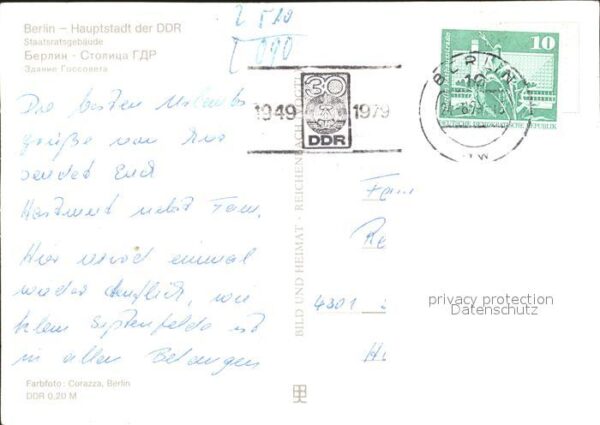 Berlin – Hauptstadt der DDR
Staatsratsgebäude
Берлин · Столица ГДР
Здание Госсовета
2 510
090
Die besten Urlaubs
grüße von hier
sendet Euch
Hartmut nebst Fam.
Hier wird einmal
wieder deutlich, wie
klein ist
in allen Belangen
Farbfoto: Corazza, Berlin
DDR 0,20 M
BILD UND HEIMAT · REICHENBACH
1949 30 1979
DDR
BERLIN
10
DEUTSCHE DEMOKRATISCHE REPUBLIK
Fam
Re
4301
privacy protection
Datenschutz